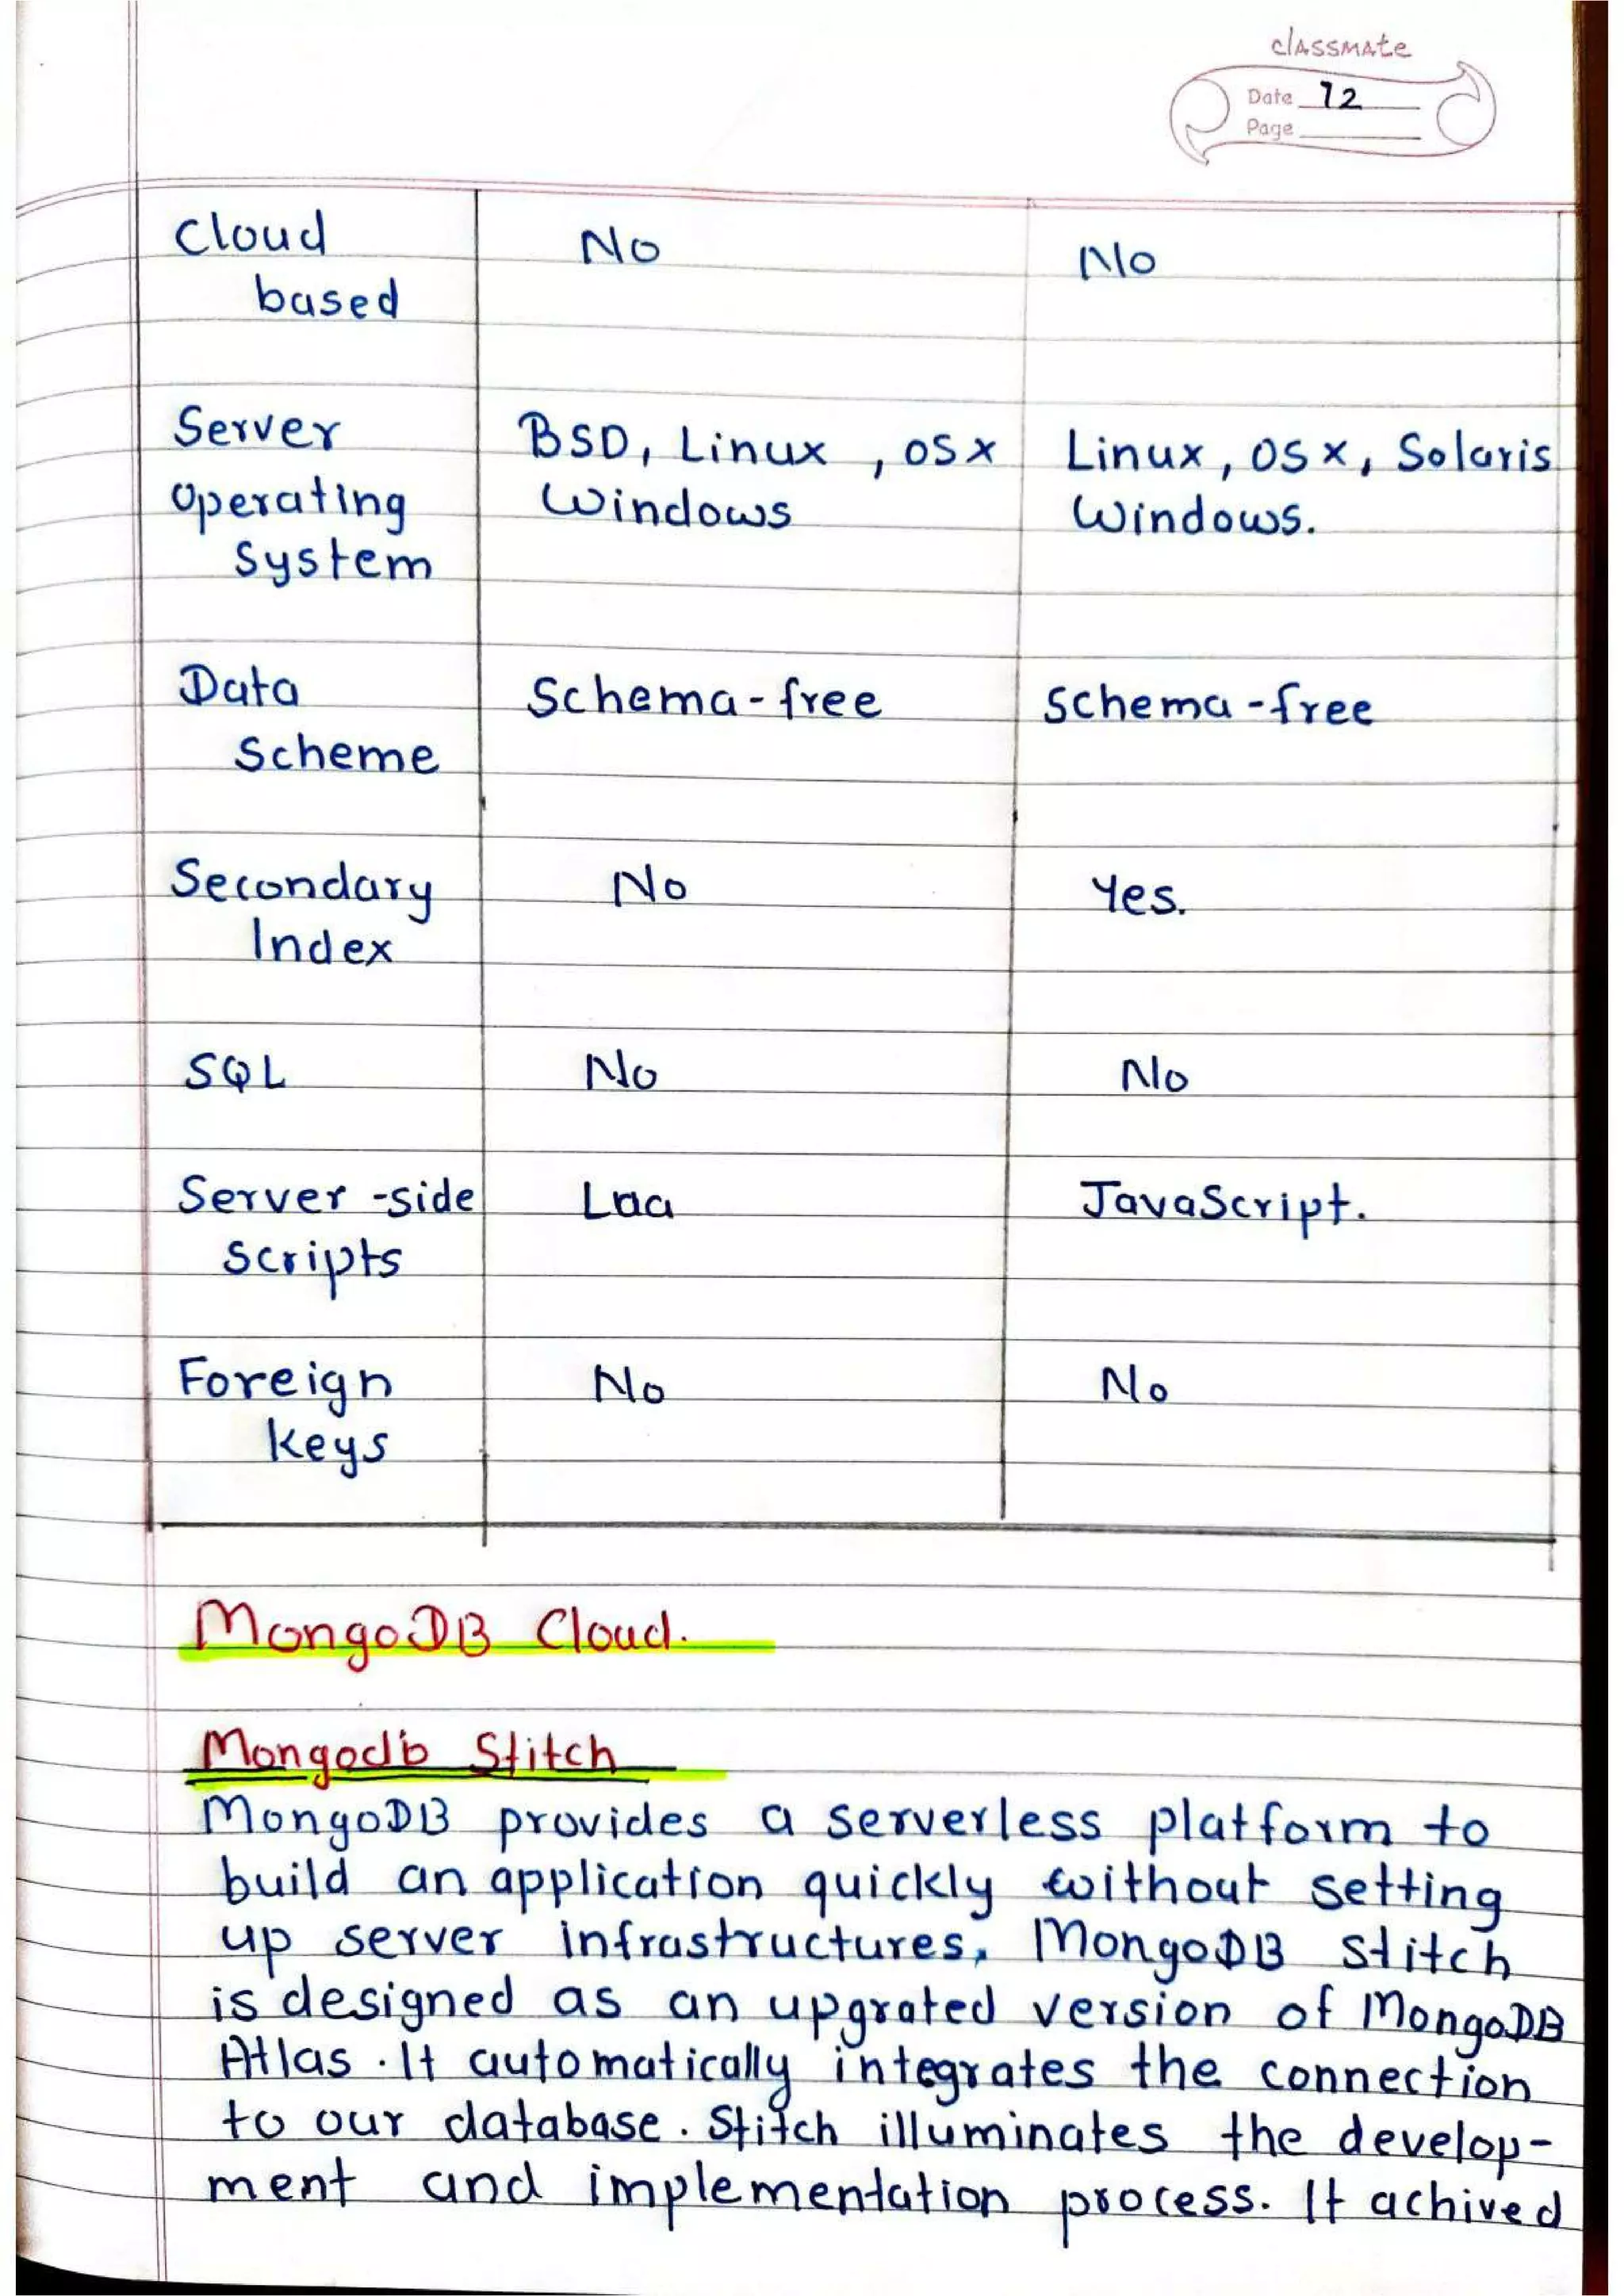 classmate
Date 12
Page
Cloud based No No
Server Operating System BSD, Linux, OSX Windows Linux, OSX, Solaris Windows.
Data Scheme Schema-free Schema-free
Secondary Index No Yes.
SQL No No
Server-side Scripts Laa JavaScript.
Foreign keys No No
MongoDB Cloud.
Mongodb Stitch
MongoDB provides a serverless platform to
build an application quickly without setting
up server infrastructures, MongoDB Stitch
is designed as an upgrated version of MongoDB
Atlas. It automatically integrates the connection
to our database. Stitch illuminates the develop-
ment and implementation process. It achived